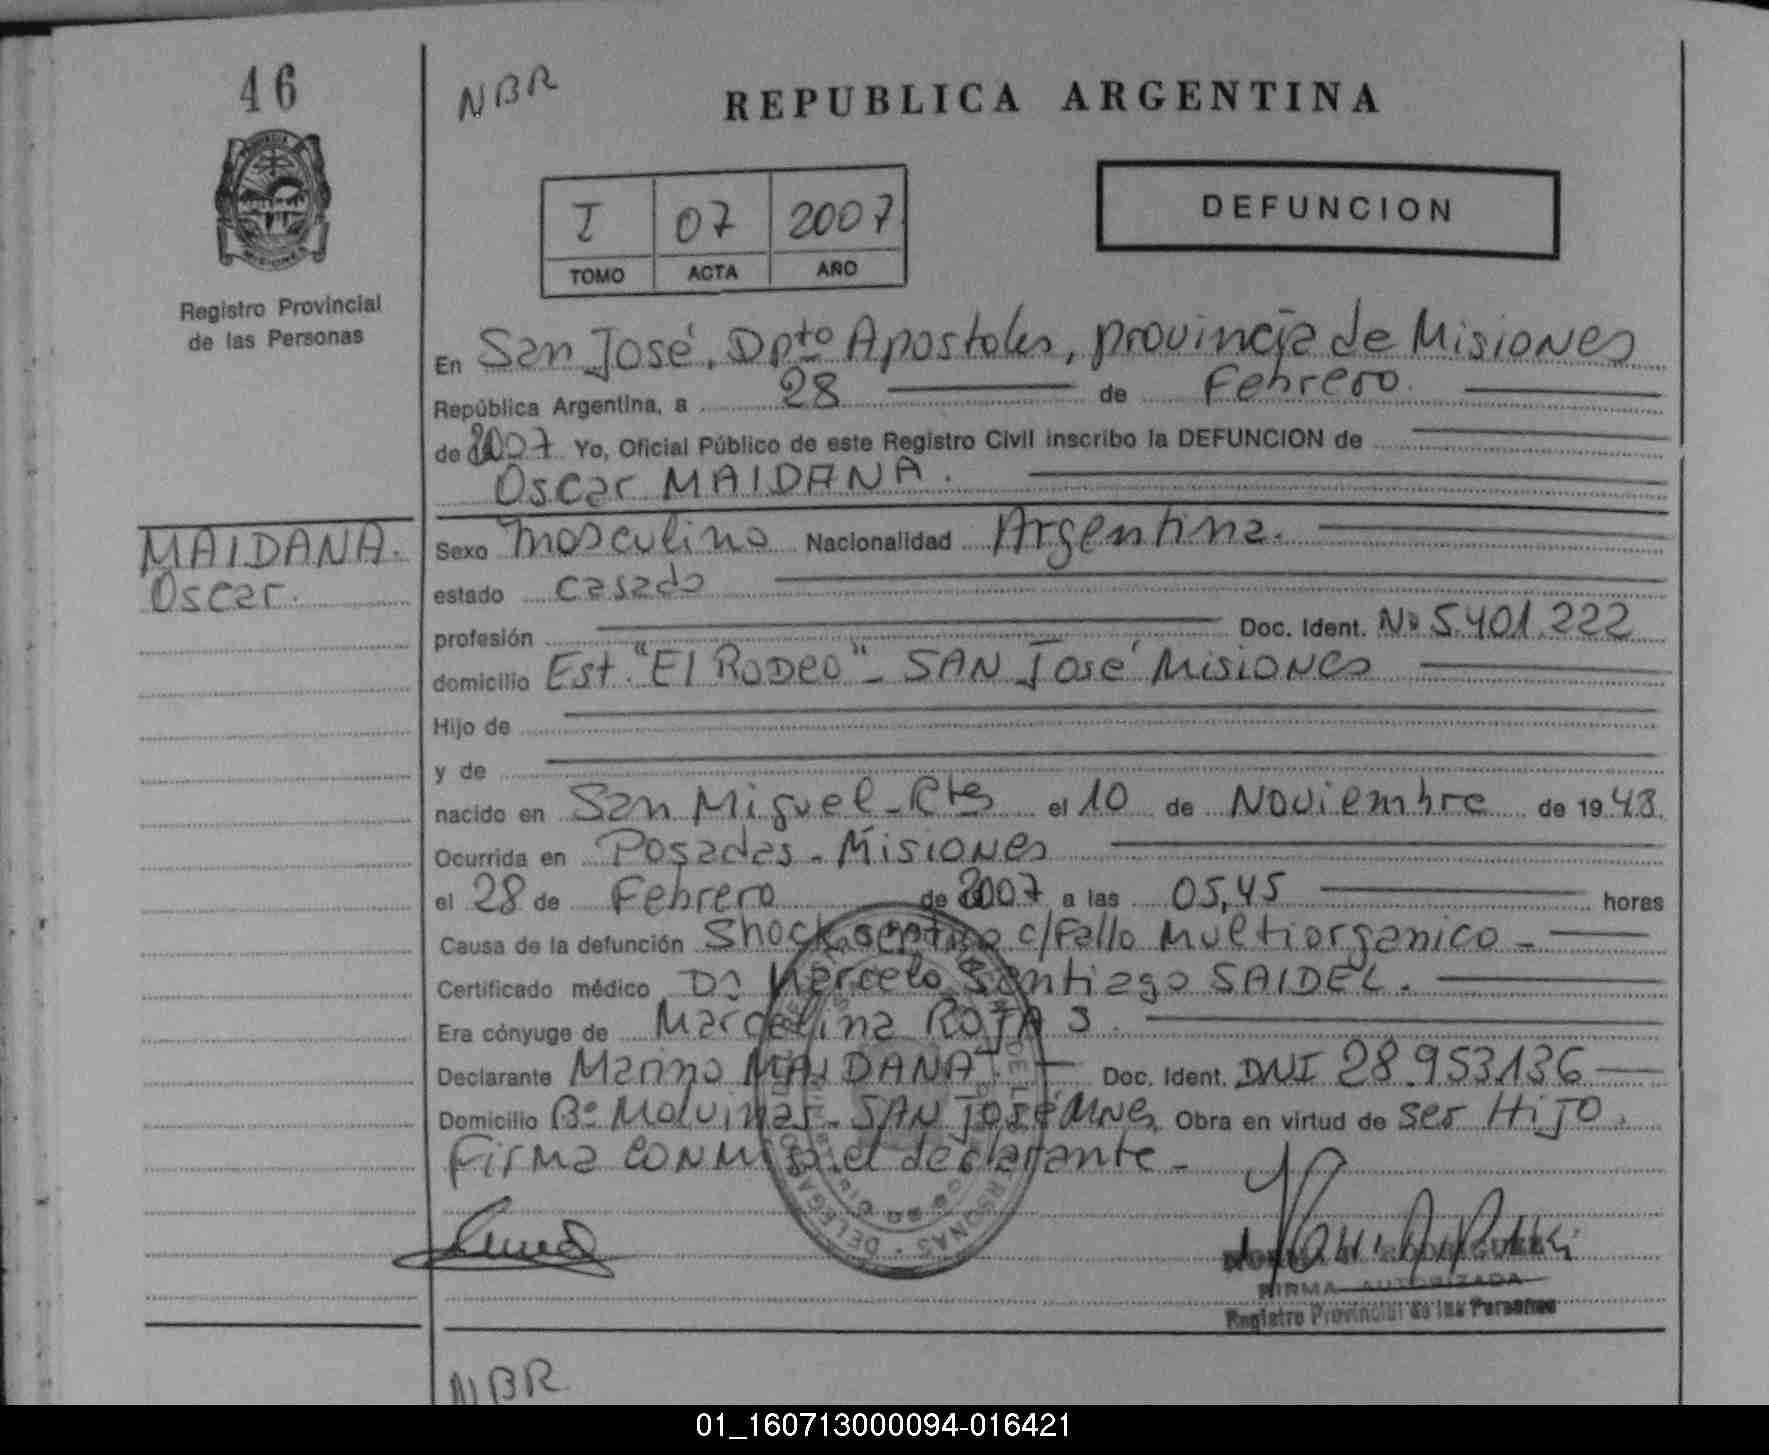 46
NBR
REPUBLICA ARGENTINA
I 07 2007
TOMO ACTA AÑO
DEFUNCION
Registro Provincial
de las Personas
En San José, Dpto Apostoles, provincia de Misiones
República Argentina, a 28 de Febrero.
de 2007 Yo, Oficial Público de este Registro Civil inscribo la DEFUNCION de
Oscar MAIDANA.
MAIDANA.
Oscar.
Sexo masculino Nacionalidad Argentina.
estado casado
profesión Doc. Ident. Nº 5.401.222
domicilio Est. "El Rodeo" - SAN José Misiones
Hijo de
y de
nacido en San Miguel - Ctes el 10 de Noviembre de 1948.
Ocurrida en Posadas - Misiones
el 28 de Febrero de 2007 a las 05,45 horas
Causa de la defunción Shock septico c/fallo Multiorganico -
Certificado médico Dr Marcelo Santiago SAIDEL.
Era cónyuge de Marcelina ROJAS.
Declarante Marino MAIDANA. Doc. Ident. DNI 28.953.136
Domicilio Bº Malvinas - SAN José Mnes Obra en virtud de ser Hijo.
Firma conmigo el declarante -
FIRMA AUTORIZADA
Registro Provincial de las Personas
NBR
01_160713000094-016421